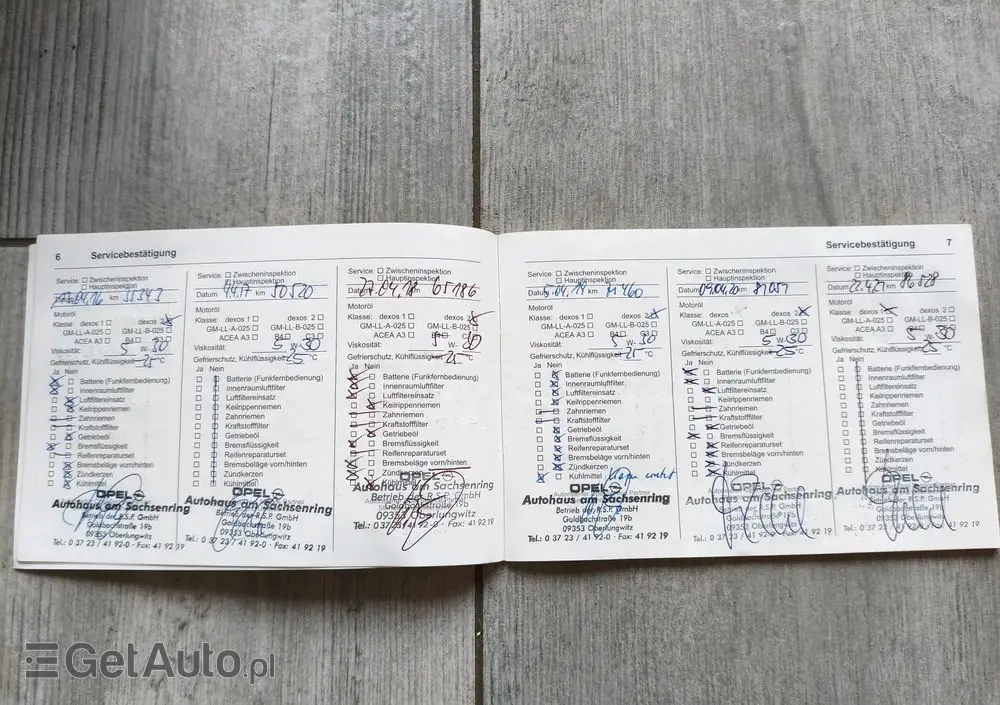 6 Servicebestätigung
Service: Zwischeninspektion
Hauptinspektion
04.16 km 35343
Motoröl
Klasse: dexos 1 dexos 2
GM-LL-A-025 GM-LL-B-025
ACEA A3 B4 C3
Viskosität: 5 W- 30
Gefrierschutz, Kühlflüssigkeit °C
Ja Nein
Batterie (Funkfernbedienung)
Innenraumluftfilter
Luftfiltereinsatz
Keilrippenriemen
Zahnriemen
Kraftstofffilter
Getriebeöl
Bremsflüssigkeit
Reifenreparaturset
Bremsbeläge vorn/hinten
Zündkerzen
Kühlmittel
OPEL
Autohaus am Sachsenring
Betrieb der R.S.P. GmbH
Goldbachstraße 19b
09353 Oberlungwitz
Tel.: 0 37 23 / 41 92-0 · Fax: 41 92 19
Service: Zwischeninspektion
Hauptinspektion
Datum 4.4.17 km 50520
Motoröl
Klasse: dexos 1 dexos 2
GM-LL-A-025 GM-LL-B-025
ACEA A3 B4 C3
Viskosität: 5 W- 30
Gefrierschutz, Kühlflüssigkeit 25 °C
Ja Nein
Batterie (Funkfernbedienung)
Innenraumluftfilter
Luftfiltereinsatz
Keilrippenriemen
Zahnriemen
Kraftstofffilter
Getriebeöl
Bremsflüssigkeit
Reifenreparaturset
Bremsbeläge vorn/hinten
Zündkerzen
Kühlmittel
OPEL
Autohaus am Sachsenring
Betrieb der R.S.P. GmbH
Goldbachstraße 19b
09353 Oberlungwitz
Tel.: 0 37 23 / 41 92-0 · Fax: 41 92 19
Service: Zwischeninspektion
Hauptinspektion
Datum 27.04.18 km 65186
Motoröl
Klasse: dexos 1 dexos 2
GM-LL-A-025 GM-LL-B-025
ACEA A3
Viskosität: W- 30
Gefrierschutz, Kühlflüssigkeit °C
Ja Nein
Batterie (Funkfernbedienung)
Innenraumluftfilter
Luftfiltereinsatz
Keilrippenriemen
Zahnriemen
Kraftstofffilter
Getriebeöl
Bremsflüssigkeit
Reifenreparaturset
Bremsbeläge vorn/hinten
Zündkerzen
Kühlmittel
OPEL
Autohaus am Sachsenring
Betrieb der R.S.P. GmbH
Goldbachstraße 19b
09353 Oberlungwitz
Tel.: 0 37 23 / 41 92-0 · Fax: 41 92 19
Servicebestätigung 7
Service: Zwischeninspektion
Hauptinspektion
Datum
Motoröl
Klasse: dexos 1 dexos 2
GM-LL-A-025 GM-LL-B-025
ACEA A3 B4 C3
Viskosität: 5 W- 30
Gefrierschutz, Kühlflüssigkeit °C
Ja Nein
Batterie (Funkfernbedienung)
Innenraumluftfilter
Luftfiltereinsatz
Keilrippenriemen
Zahnriemen
Kraftstofffilter
Getriebeöl
Bremsflüssigkeit
Reifenreparaturset
Bremsbeläge vorn/hinten
Zündkerzen
Kühlmittel
OPEL
Autohaus am Sachsenring
Betrieb der R.S.P. GmbH
Goldbachstraße 19b
09353 Oberlungwitz
Tel.: 0 37 23 / 41 92-0 · Fax: 41 92 19
Service: Zwischeninspektion
Hauptinspektion
Datum 09.04.20 km 81051
Motoröl
Klasse: dexos 1 dexos 2
GM-LL-A-025 GM-LL-B-025
ACEA A3 B4 C3
Viskosität: 5 W- 30
Gefrierschutz, Kühlflüssigkeit 25 °C
Ja Nein
Batterie (Funkfernbedienung)
Innenraumluftfilter
Luftfiltereinsatz
Keilrippenriemen
Zahnriemen
Kraftstofffilter
Getriebeöl
Bremsflüssigkeit
Reifenreparaturset
Bremsbeläge vorn/hinten
Zündkerzen
Kühlmittel
OPEL
Autohaus am Sachsenring
Betrieb der R.S.P. GmbH
Goldbachstraße 19b
09353 Oberlungwitz
Tel.: 0 37 23 / 41 92-0 · Fax: 41 92 19
Service: Zwischeninspektion
Hauptinspektion
Datum 22.4.21 km 86528
Motoröl
Klasse: dexos 1 dexos 2
GM-LL-A-025 GM-LL-B-025
ACEA A3
Viskosität: 5 W- 30
Gefrierschutz, Kühlflüssigkeit 25 °C
Ja Nein
Batterie (Funkfernbedienung)
Innenraumluftfilter
Luftfiltereinsatz
Keilrippenriemen
Zahnriemen
Kraftstofffilter
Getriebeöl
Bremsflüssigkeit
Reifenreparaturset
Bremsbeläge vorn/hinten
Zündkerzen
Kühlmittel
OPEL
Autohaus am Sachsenring
Betrieb der R.S.P. GmbH
Goldbachstraße 19b
09353 Oberlungwitz
Tel.: 0 37 23 / 41 92-0 · Fax: 41 92 19
GetAuto.pl